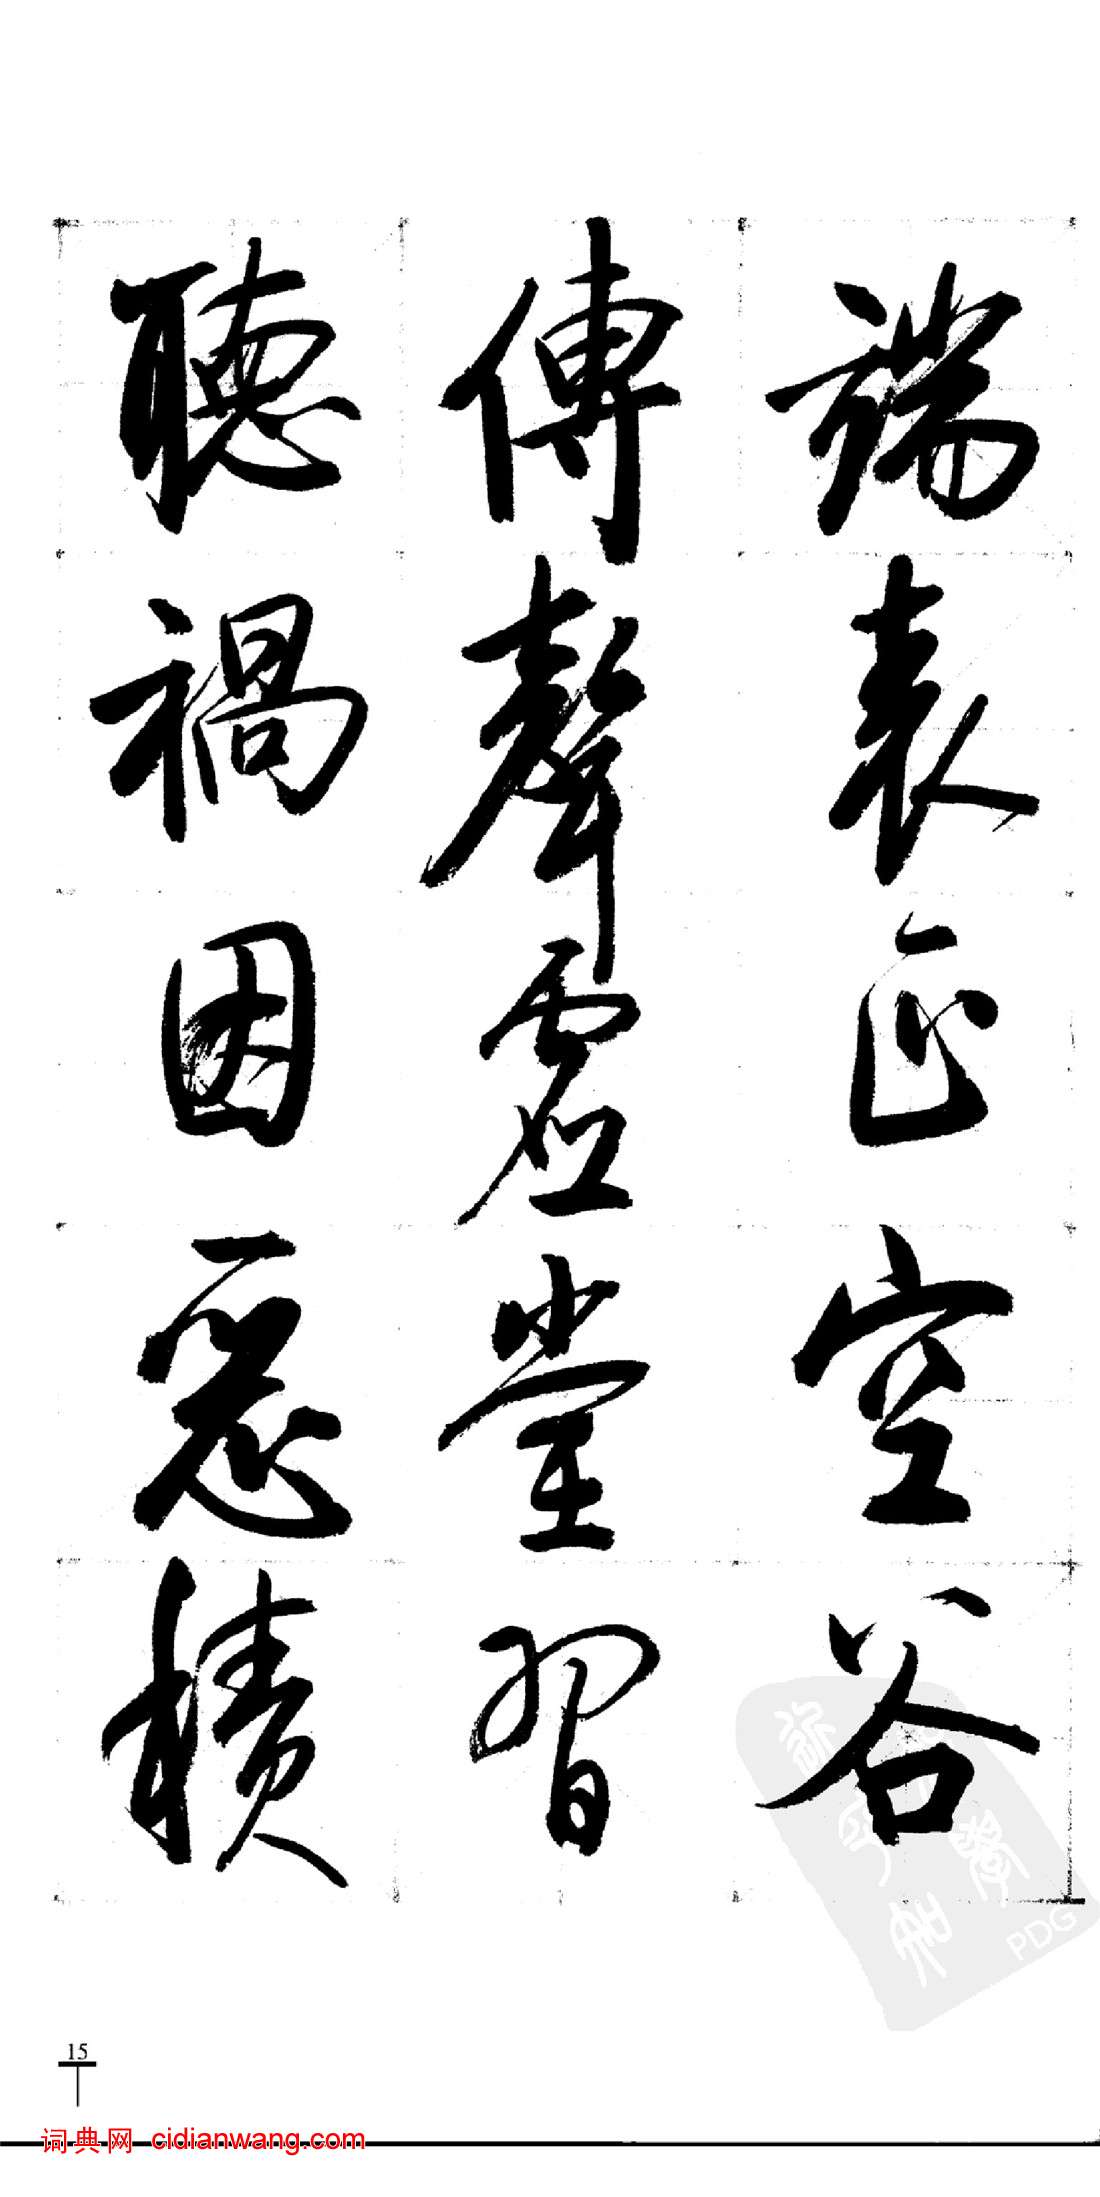 端表正空谷
傳聲虛堂習
聽禍因惡積
15
词典网 cidianwang.com
PDG